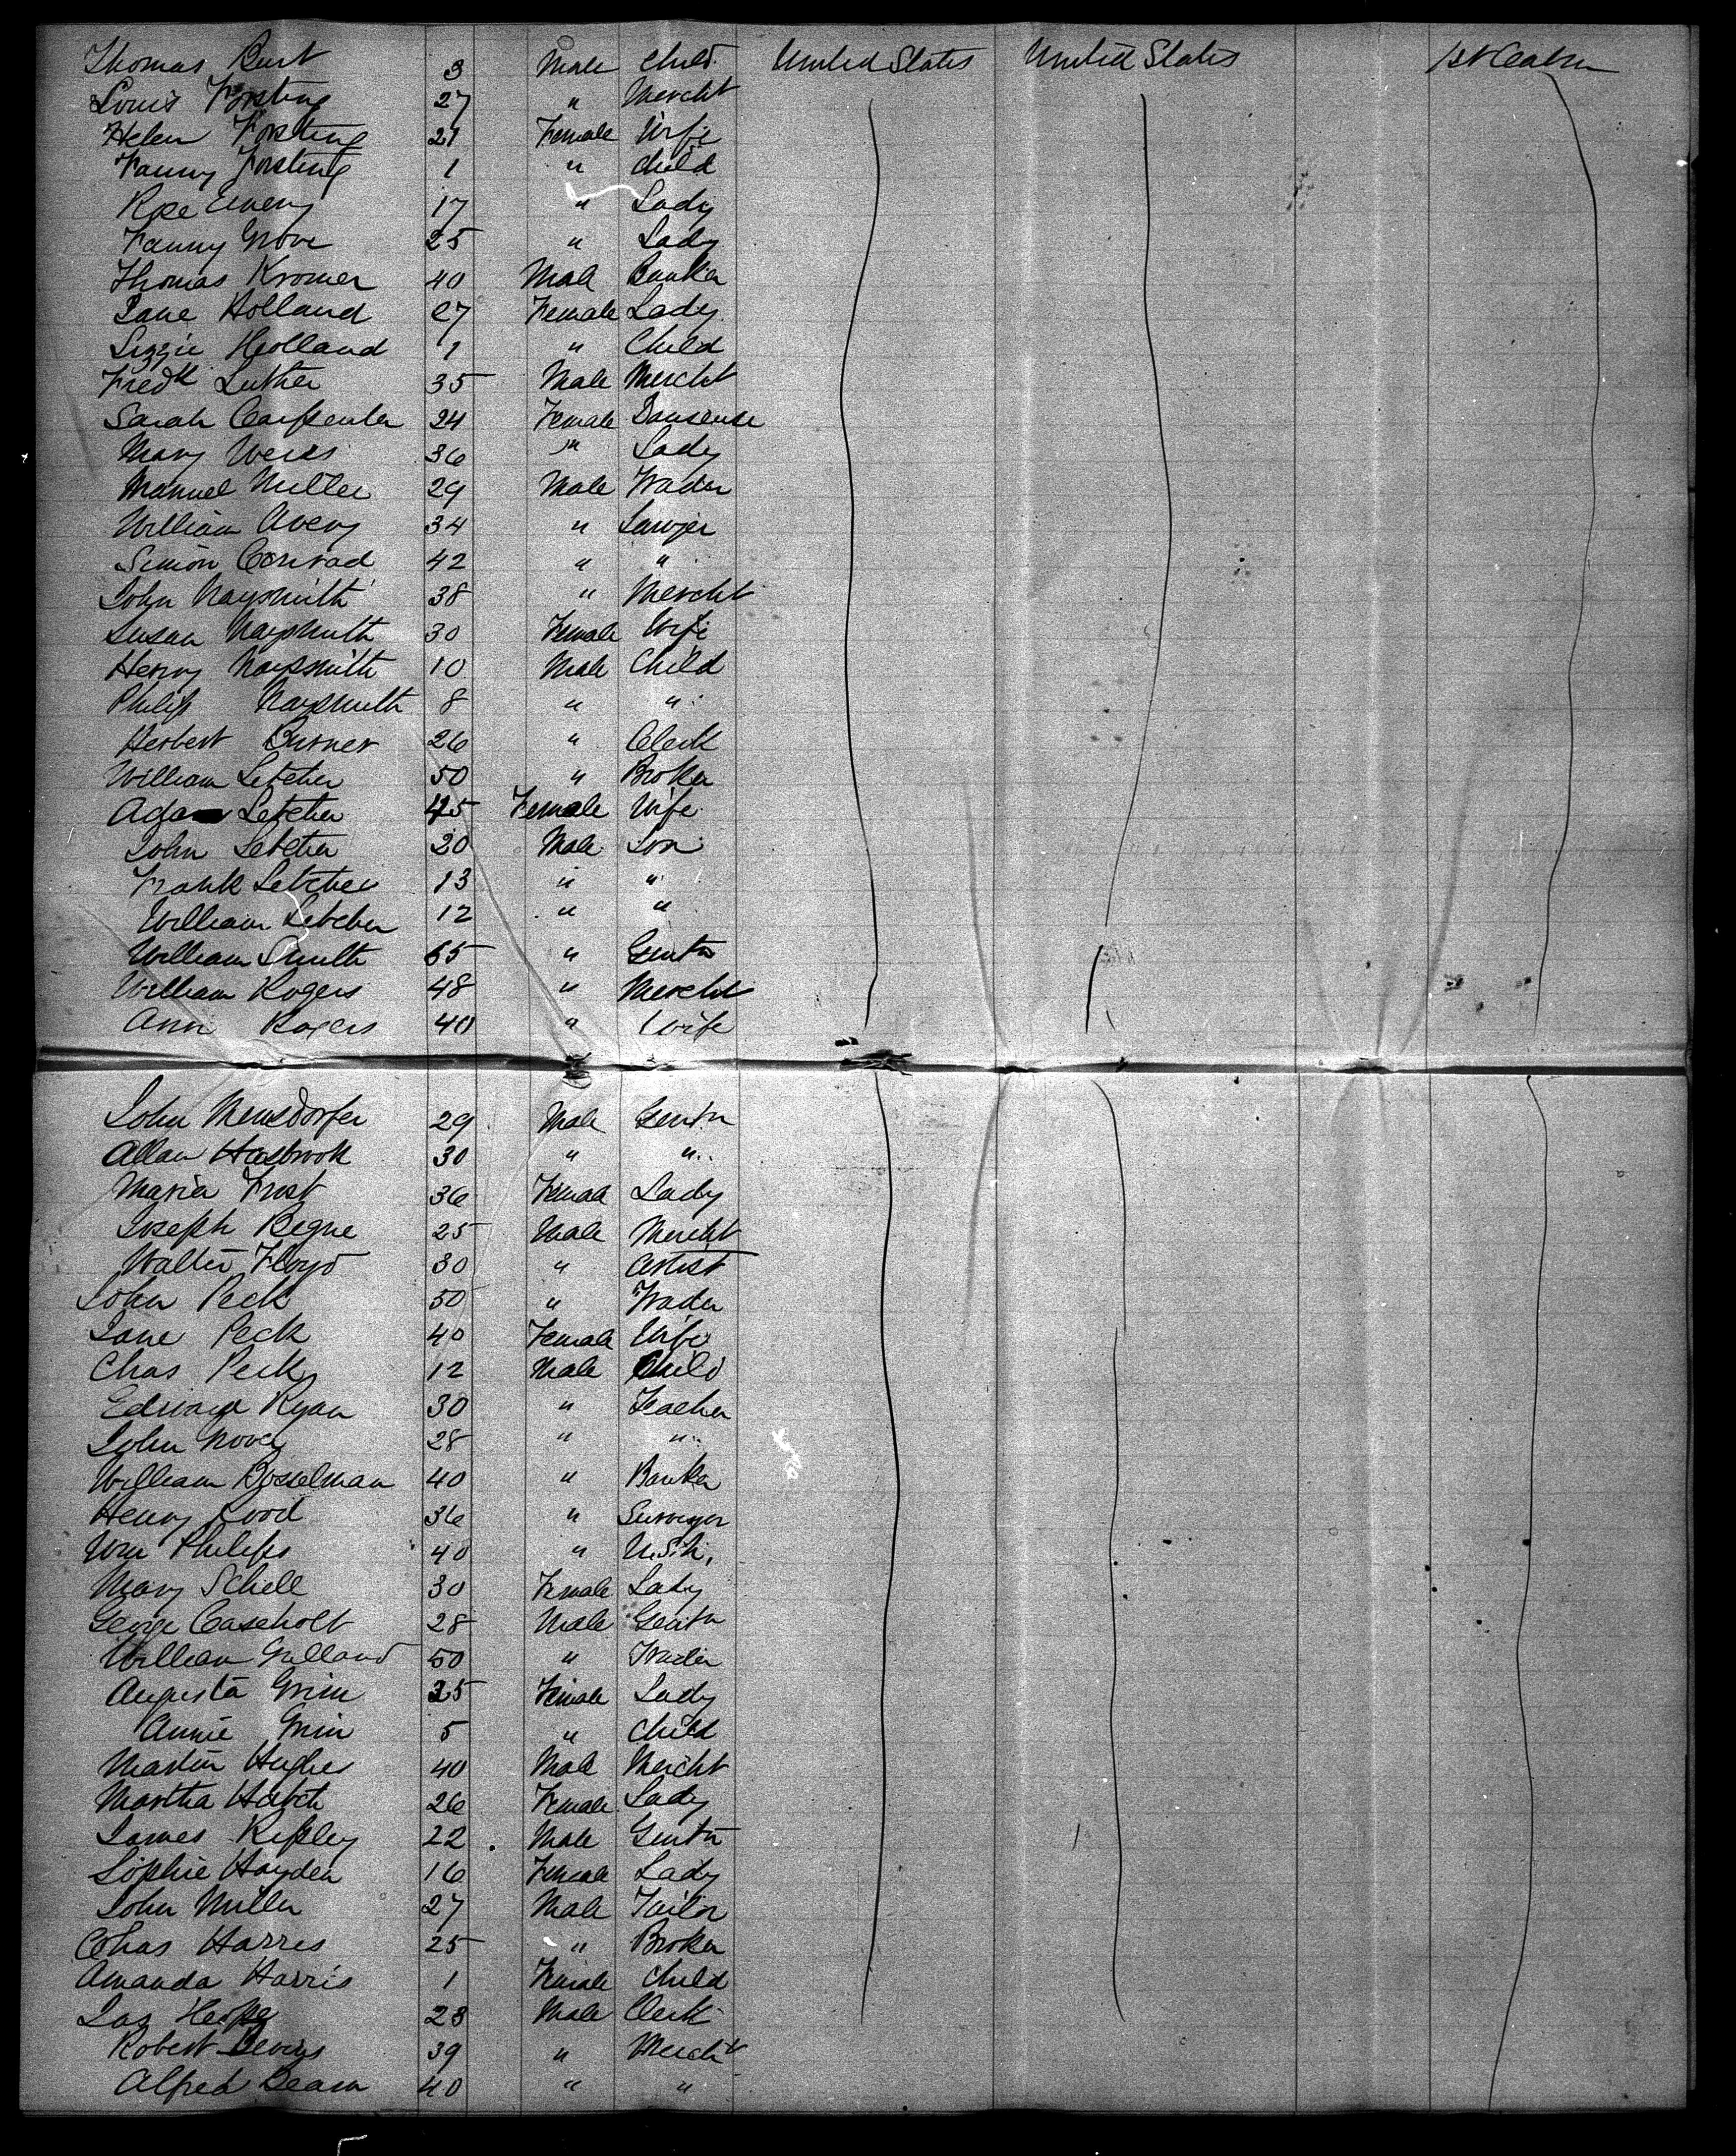 Thomas Burt 3 Male Child United States United States 1st Cabin
Louis Forsting 27 " Mercht
Helen Forsting 21 Female Wife
Fanny Forsting 1 " Child
Rose Emery 17 " Lady
Fanny Grove 25 " Lady
Thomas Kromer 40 Male Banker
Jane Holland 27 Female Lady
Lizzie Holland 1 " Child
Fredk Luther 35 Male Mercht
Sarah Carpenter 24 Female Danseuse
Mary Weeks 36 " Lady
Manuel Miller 29 Male Trader
William Avery 34 " Lawyer
Simon Conrad 42 " "
John Naysmith 38 " Mercht
Susan Naysmith 30 Female Wife
Henry Naysmith 10 Male Child
Philip Naysmith 8 " "
Herbert Burner 26 " Clerk
William Letcher 50 " Broker
Ada Letcher 45 Female Wife
John Letcher 20 Male Son
Frank Letcher 13 " "
William Letcher 12 " "
William Smith 65 " Gentn
William Rogers 48 " Mercht
Ann Rogers 40 " Wife
John Mensdorfer 29 Male Gentn
Allan Hasbrook 30 " "
Maria Frost 36 Female Lady
Joseph Begue 25 Male Mercht
Walter Floyd 30 " Artist
John Peck 50 " Trader
Jane Peck 40 Female Wife
Chas Peck 12 Male Child
Edward Ryan 30 " Teacher
John 28 " "
William Bosselman 40 " Banker
Henry Rood 36 " Surveyor
Wm Philips 40 " U.S.N.
Mary Schell 30 Female Lady
George Casebolt 28 Male Gentn
William Gulland 50 " Trader
Augusta Grim 25 Female Lady
Annie Grim 5 " Child
Martin Hughes 40 Male Mercht
Martha Hatch 26 Female Lady
James Ripley 22 Male Gentn
Sophie Hayden 16 Female Lady
John Miller 27 Male Tailor
Chas Harris 25 " Broker
Amanda Harris 1 Female Child
Jas 28 Male Clerk
Robert 39 " Mercht
Alfred Beam 40 " "